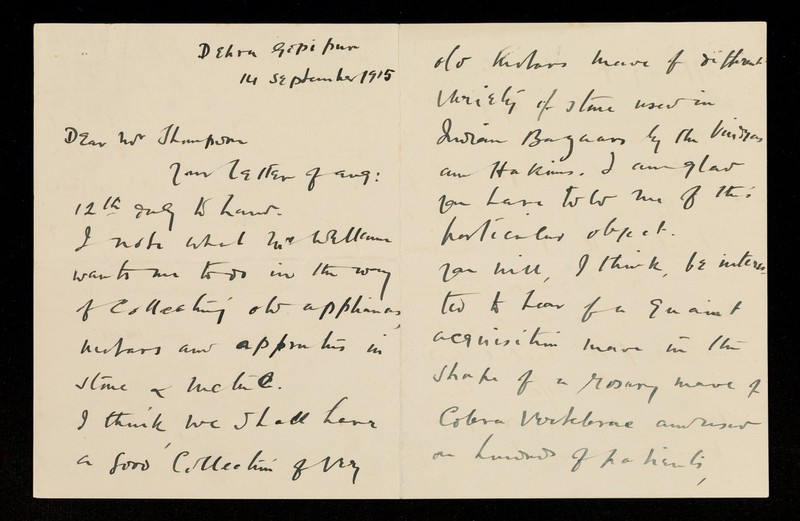 Dehra Gopipur
14 September 1915
Dear Mr Thompson
Your letter of Aug:
12th duly to hand.
I note what Mr Wellcome
wants me to do in the way
of Collecting old appliances,
Mortars and apparatus in
Stone & Metal.
I think, we shall have
a good Collection of very
old Mortars made of different
variety of stone used in
Indian Bazaars by the Vaidyas
and Hakims. I am glad
you have told me of this
particular object.
You will, I think, be interes-
ted to hear of a quaint
acquisition made in the
shape of a rosary made of
Cobra Vertebrae and used
on hundreds of patients,